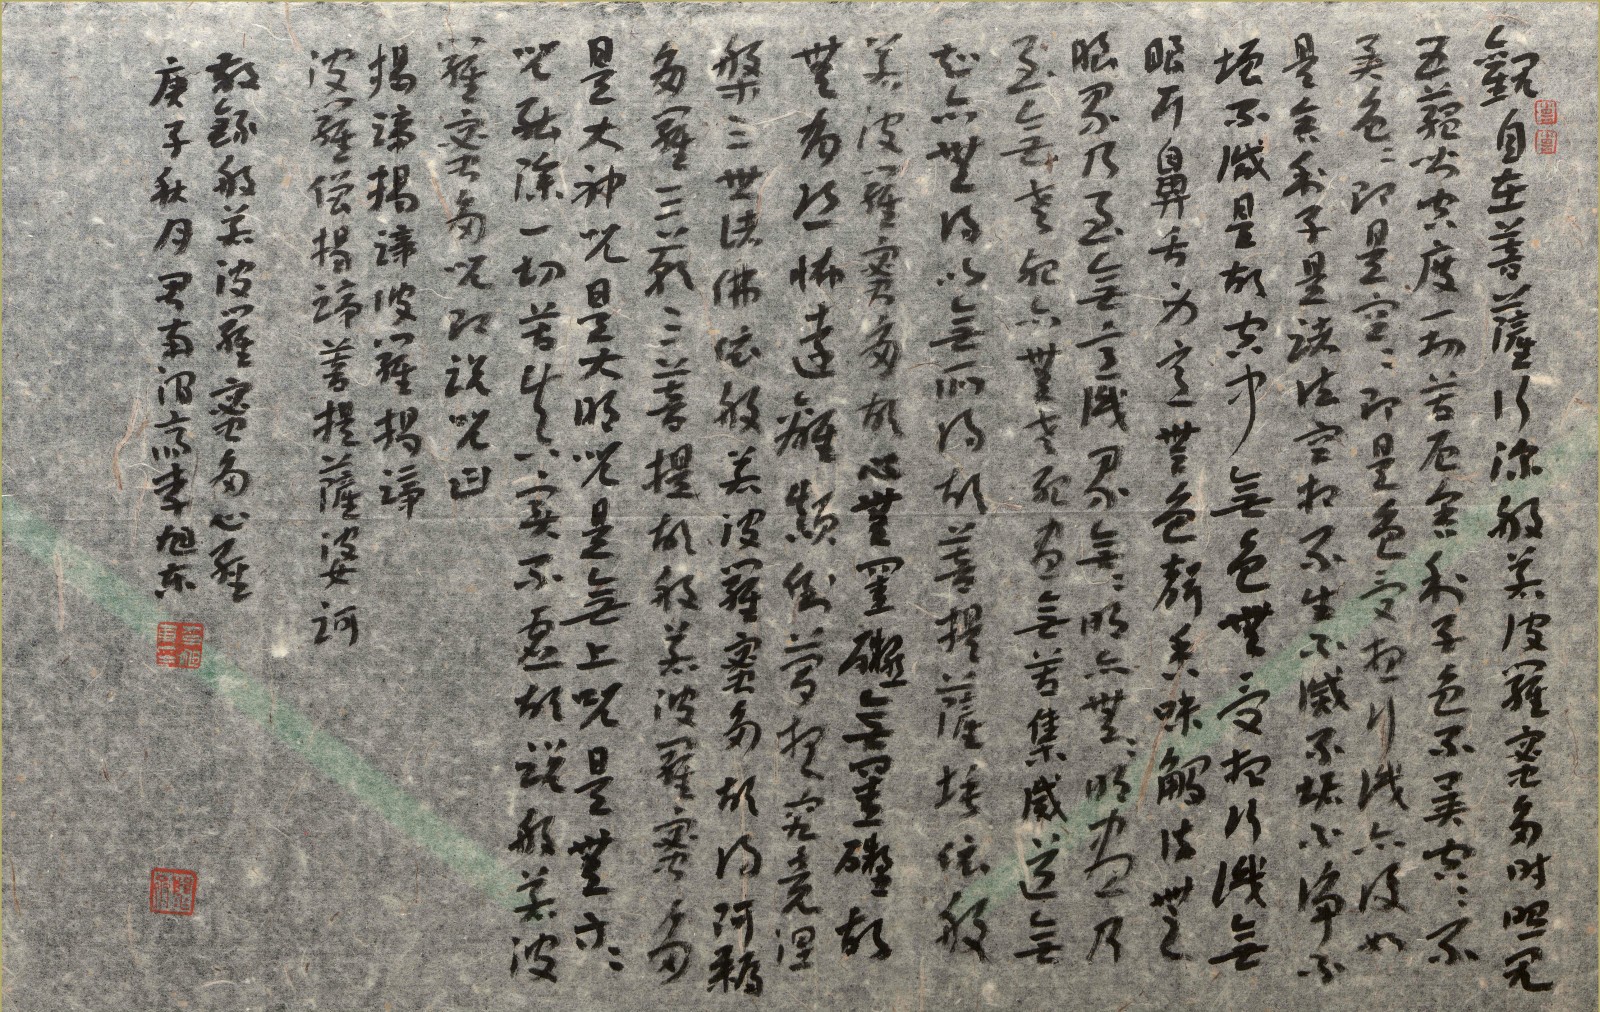 觀自在菩薩行深般若波羅蜜多時照見
五蘊皆空度一切苦厄舍利子色不異空〻不
異色〻即是空〻即是色受想行識亦復如
是舍利子是諸法空相不生不滅不垢不淨不
增不減是故空中無色無受想行識無
眼耳鼻舌身意無色聲香味觸法無
眼界乃至無意識界無〻明亦無〻明盡乃
至無老死亦無老死盡無苦集滅道無
智亦無得以無所得故菩提薩埵依般
若波羅蜜多故心無罣礙無罣礙故
無有恐怖遠離顛倒夢想究竟涅
槃三世諸佛依般若波羅蜜多故得阿耨
多羅三藐三菩提故般若波羅蜜多
是大神咒是大明咒是無上咒是無等〻
咒能除一切苦真實不虛故說般若波
羅蜜多咒即說咒曰
揭諦揭諦波羅揭諦
波羅僧揭諦菩提薩婆訶
敬錄般若波羅蜜多心經
庚子秋月 李旭東